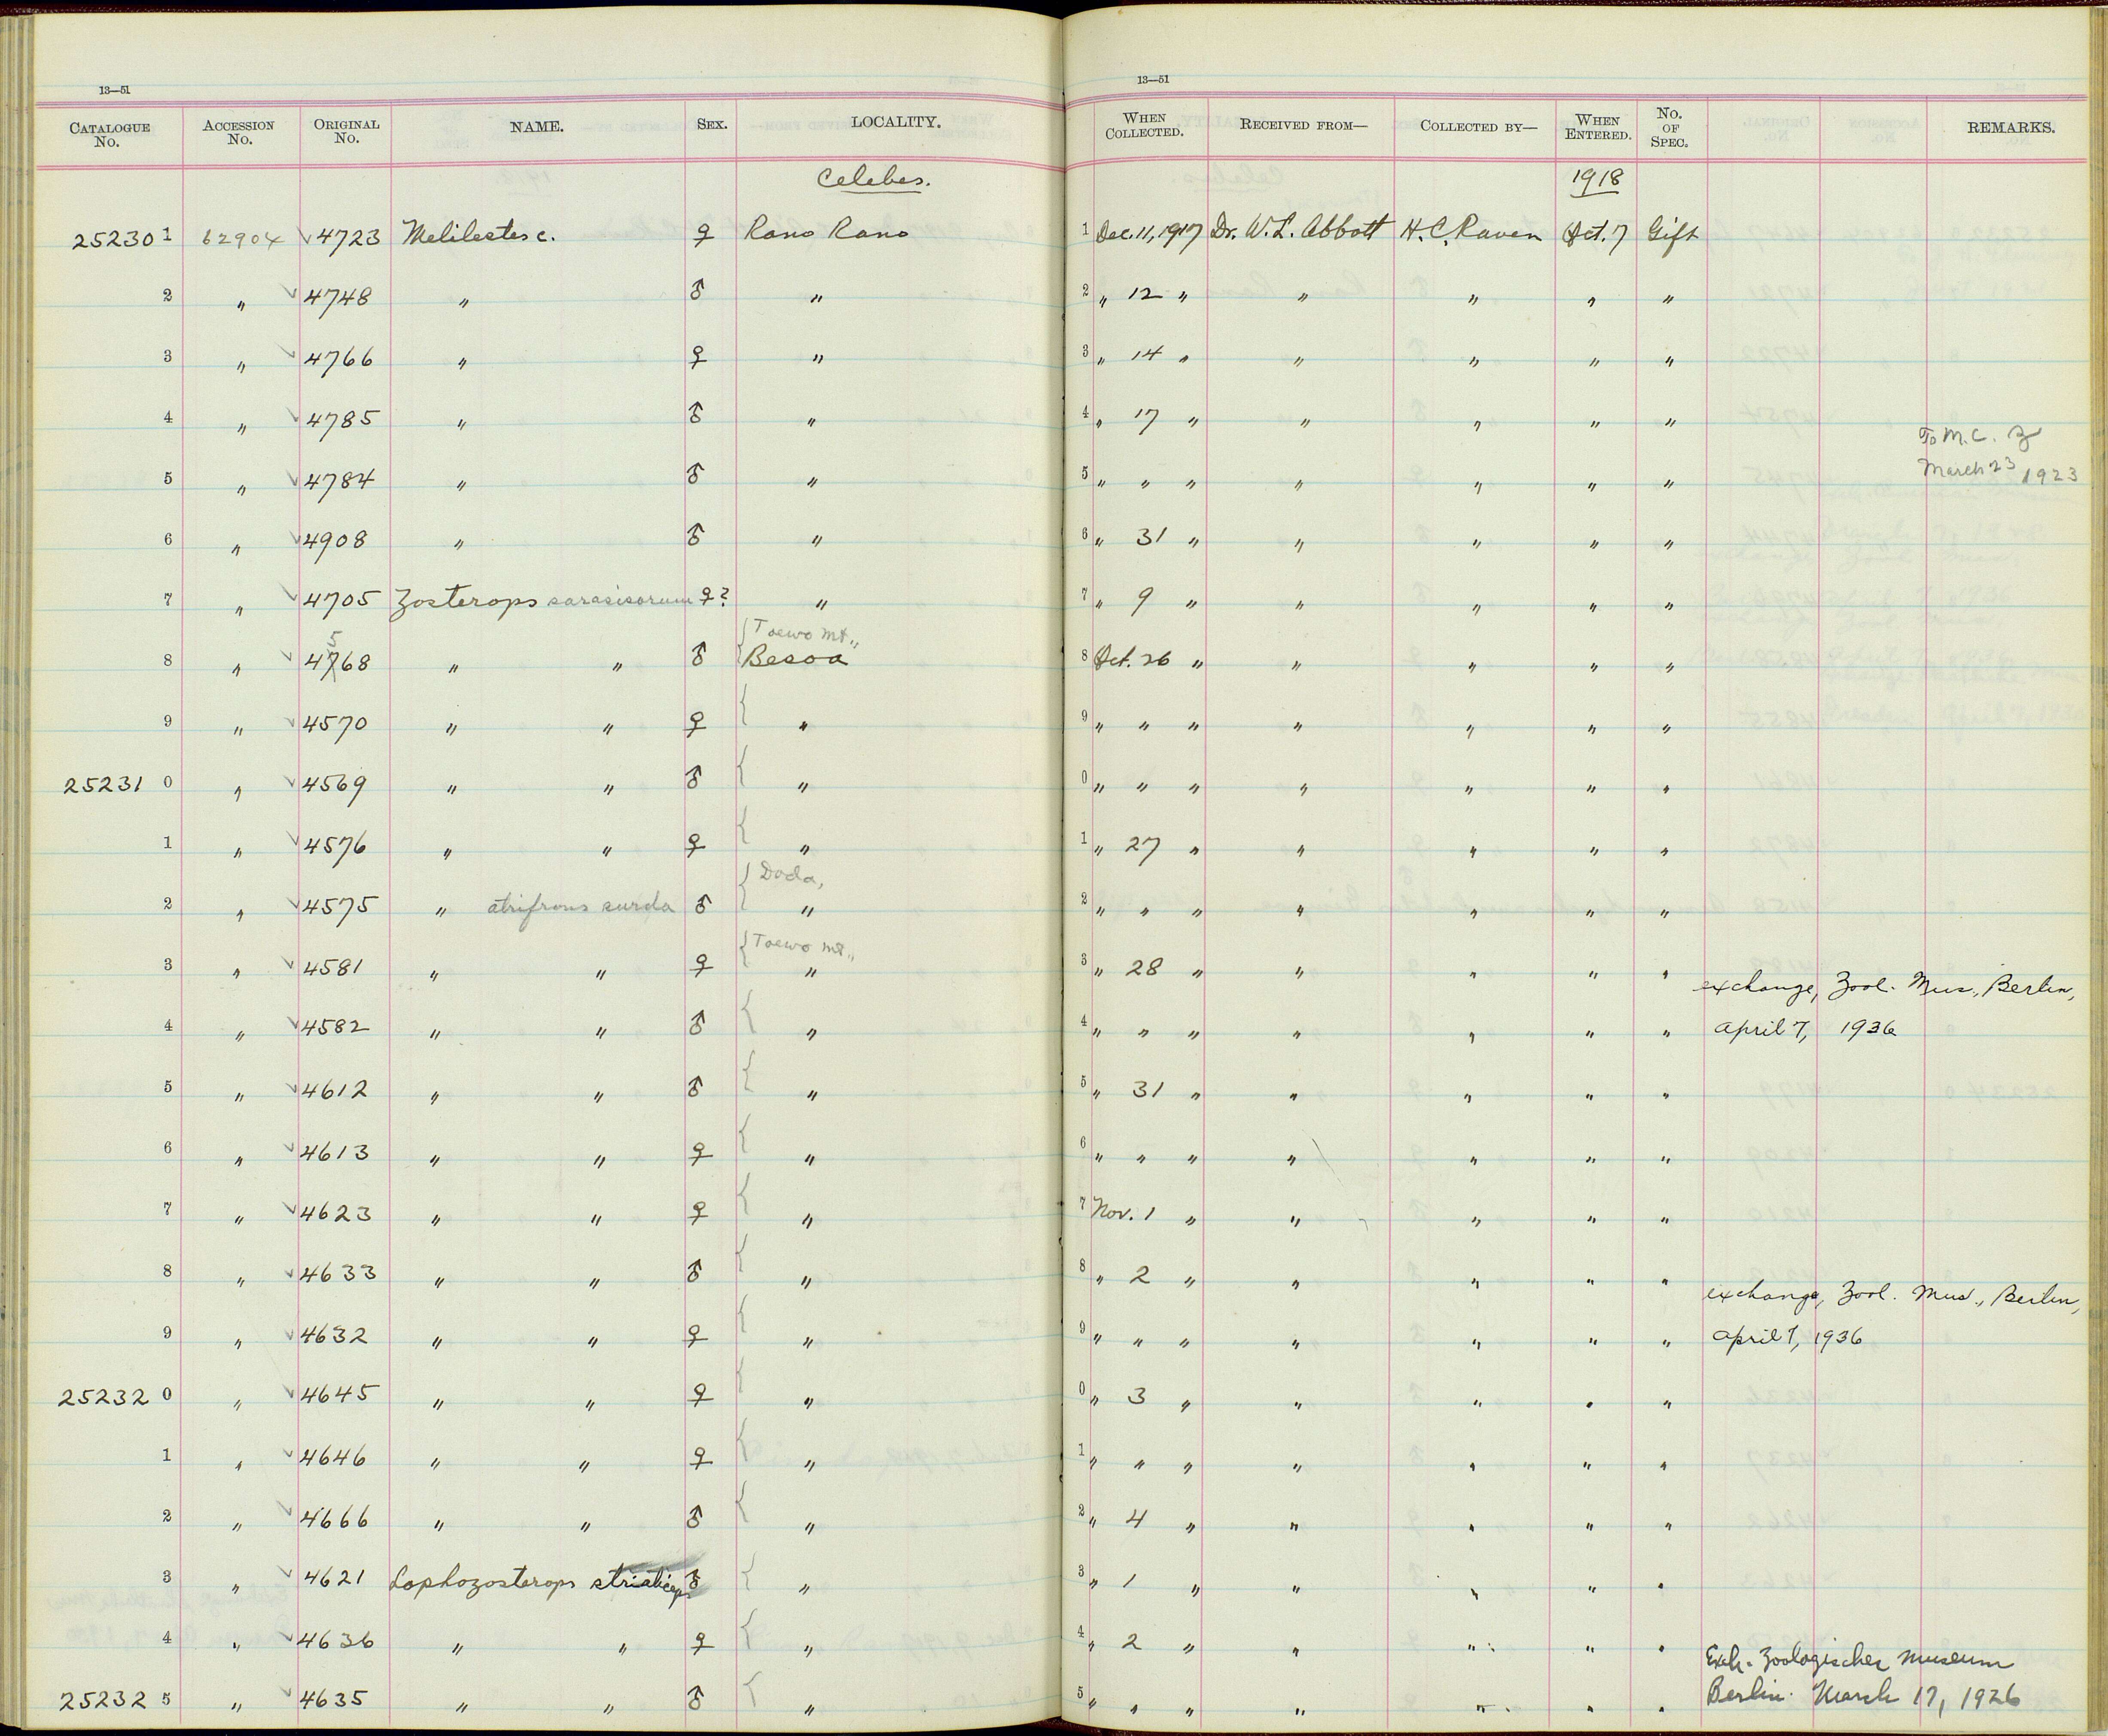 13—51
CATALOGUE No. ACCESSION No. ORIGINAL No. NAME. SEX. LOCALITY.
Celebes.
25230 1 62904 ✓ 4723 Melilestes c. ♀ Rano Rano
2 〃 ✓ 4748 〃 ♂ 〃
3 〃 ✓ 4766 〃 ♀ 〃
4 〃 ✓ 4785 〃 ♂ 〃
5 〃 ✓ 4784 〃 ♂ 〃
6 〃 ✓ 4908 〃 ♂ 〃
7 〃 ✓ 4705 Zosterops sarasinorum ♀? 〃
5 {Toewo Mt.,
8 〃 ✓ 4768 〃 〃 ♂ Besoa
9 〃 ✓ 4570 〃 〃 ♀ { 〃
25231 0 〃 ✓ 4569 〃 〃 ♂ { 〃
1 〃 ✓ 4576 〃 〃 ♀ { 〃
{Doda,
2 〃 ✓ 4575 〃 atrifrons surda ♂ 〃
{Toewo mt.,
3 〃 ✓ 4581 〃 〃 ♀ 〃
4 〃 ✓ 4582 〃 〃 ♂ { 〃
5 〃 ✓ 4612 〃 〃 ♂ { 〃
6 〃 ✓ 4613 〃 〃 ♀ { 〃
7 〃 ✓ 4623 〃 〃 ♀ { 〃
8 〃 ✓ 4633 〃 〃 ♂ { 〃
9 〃 ✓ 4632 〃 〃 ♀ { 〃
25232 0 〃 ✓ 4645 〃 〃 ♀ { 〃
1 〃 ✓ 4646 〃 〃 ♀ { 〃
2 〃 ✓ 4666 〃 〃 ♂ { 〃
3 〃 ✓ 4621 Lophozosterops striaticeps ♂ { 〃
4 〃 ✓ 4636 〃 〃 ♀ { 〃
25232 5 〃 ✓ 4635 〃 〃 ♂ { 〃
13—51
WHEN COLLECTED. RECEIVED FROM— COLLECTED BY— WHEN ENTERED. No. OF SPEC. REMARKS.
1918
1 Dec. 11, 1917 Dr. W. L. Abbott H. C. Raven Oct. 7 Gift
2 〃 12 〃 〃 〃 〃 〃
3 〃 14 〃 〃 〃 〃 〃
4 〃 17 〃 〃 〃 〃 〃
To M. C. Z
5 〃 〃 〃 〃 〃 〃 〃 March 23 1923
6 〃 31 〃 〃 〃 〃 〃
7 〃 9 〃 〃 〃 〃 〃
8 Oct. 26 〃 〃 〃 〃 〃
9 〃 〃 〃 〃 〃 〃 〃
0 〃 〃 〃 〃 〃 〃 〃
1 〃 27 〃 〃 〃 〃 〃
2 〃 〃 〃 〃 〃 〃 〃
3 〃 28 〃 〃 〃 〃 〃
exchange, Zool. Mus., Berlin,
4 〃 〃 〃 〃 〃 〃 〃 April 7, 1936
5 〃 31 〃 〃 〃 〃 〃
6 〃 〃 〃 〃 〃 〃 〃
7 Nov. 1 〃 〃 〃 〃 〃
8 〃 2 〃 〃 〃 〃 〃
exchange, Zool. Mus., Berlin,
9 〃 〃 〃 〃 〃 〃 〃 April 7, 1936
0 〃 3 〃 〃 〃 〃 〃
1 〃 〃 〃 〃 〃 〃 〃
2 〃 4 〃 〃 〃 〃 〃
3 〃 1 〃 〃 〃 〃 〃
4 〃 2 〃 〃 〃 〃 〃
Exch. Zoologisches Museum
5 〃 〃 〃 〃 〃 〃 〃 Berlin. March 17, 1926